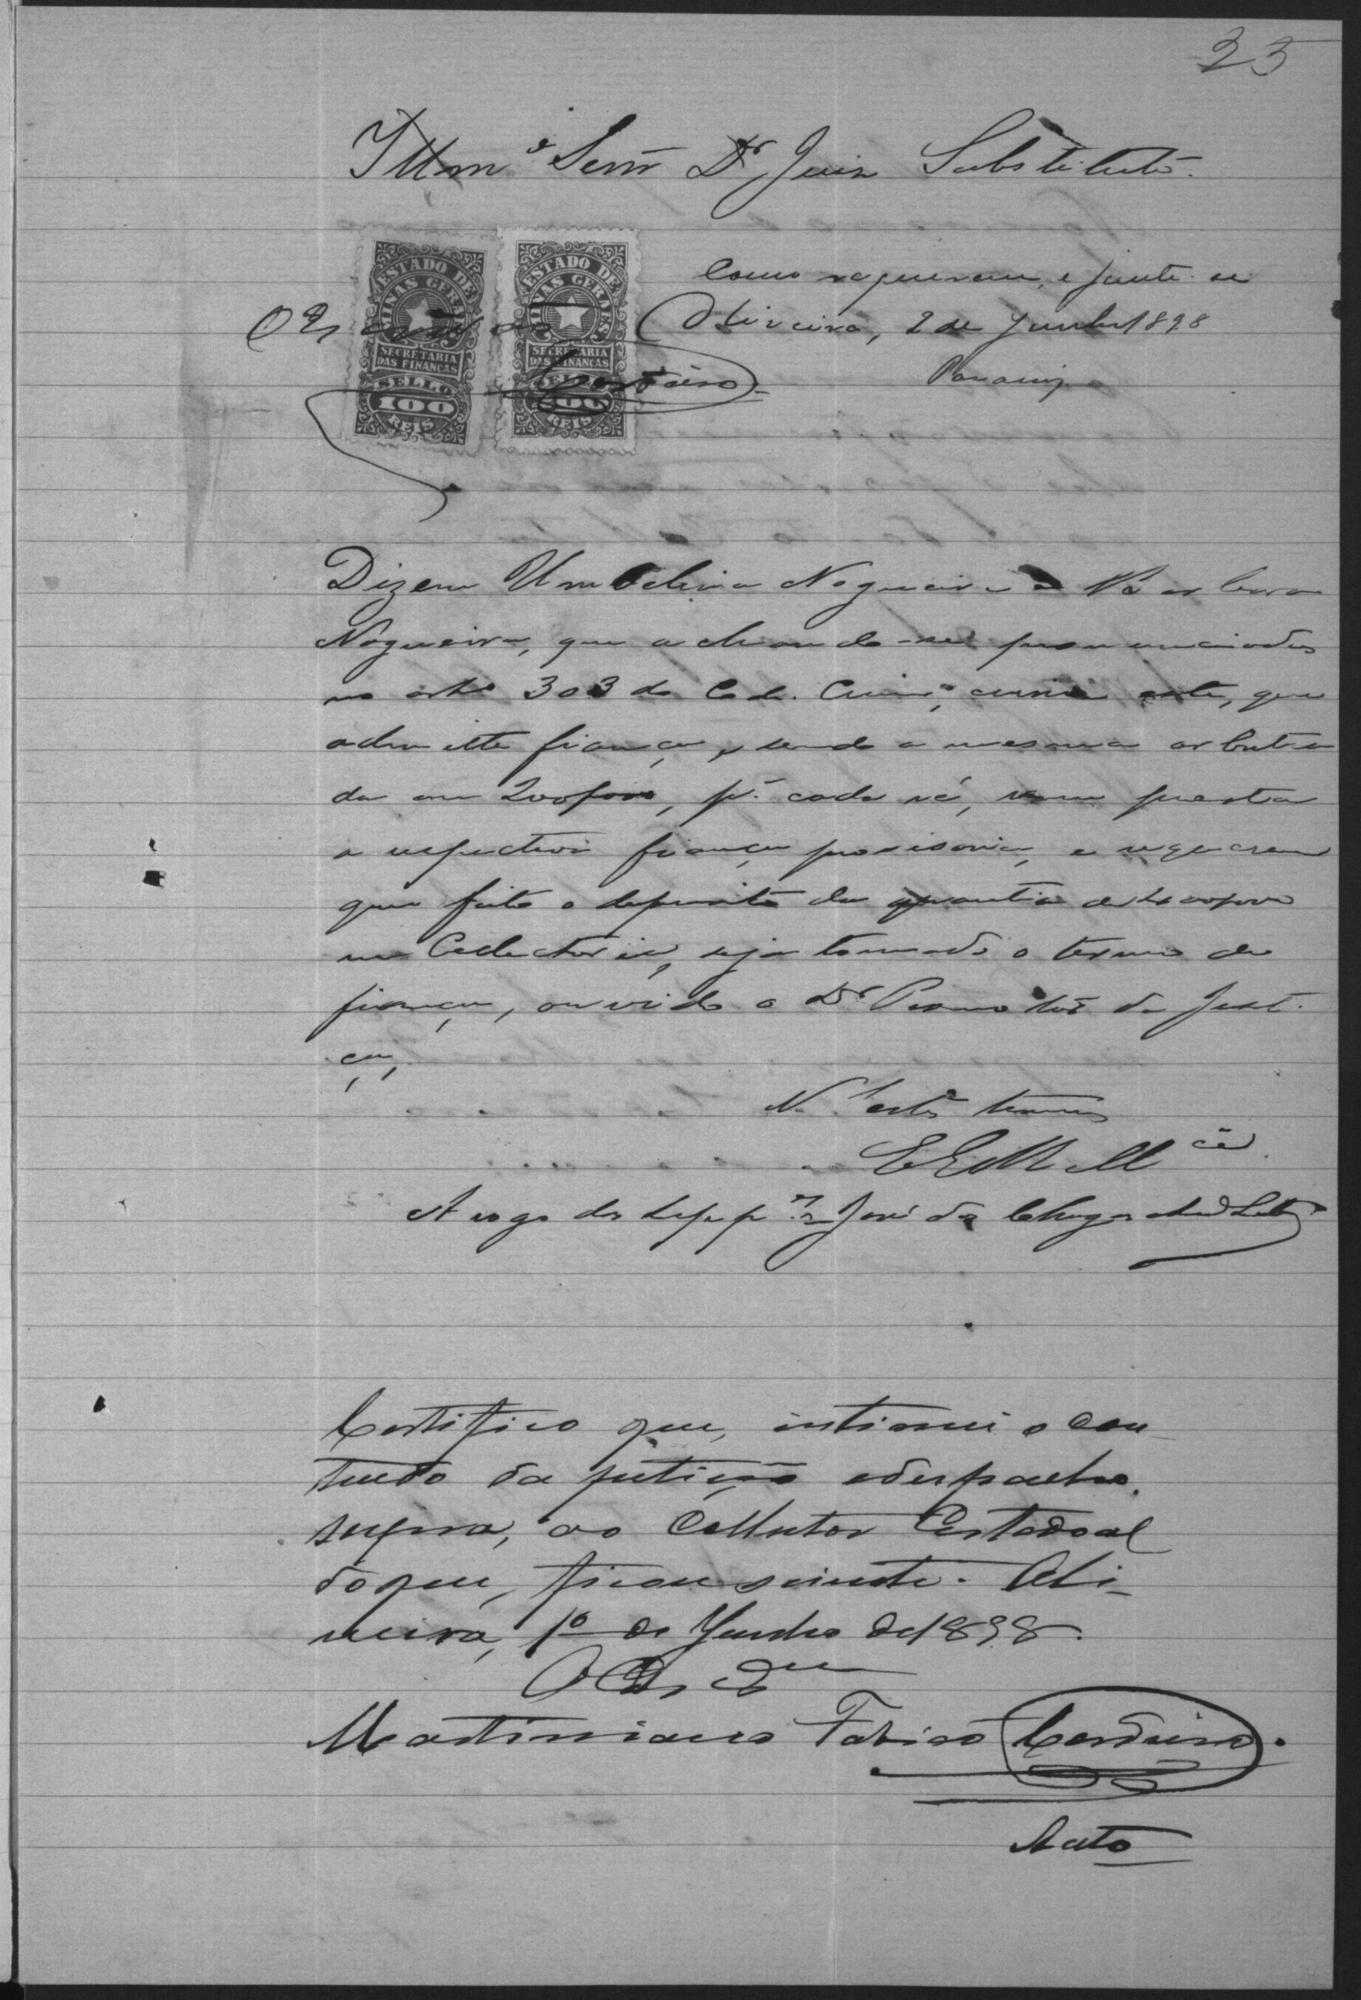 23
Illmº Senr Dr Juiz Substituto.
Como requerem, e junte-se
Oliveira, 2 de Junho 1898
ESTADO DE MINAS GERAES
SECRETARIA DAS FINANÇAS
SELLO
100
REIS
ESTADO DE MINAS GERAES
SECRETARIA DAS FINANÇAS
SELLO
100
REIS
O Escrivão
Cordeiro
Dizem Umbelina Nogueira e Barbara
Nogueira, que achando-se pronunciadas
no artº 303 do Cod. Crim., crime este, que
admitte fiança, e sendo a mesma arbitra
da em 200$000, pª cada ré, vem prestar
a respectiva fiança provisoria, e requerem
que feito o deposito da quantia de
na Collectoria, seja tomado o termo de
fiança, ouvido o Dr Promotor da Justi-
ça,
N'estes termos
E E R Mcê
A rogo das suppes José das Chagas
Certifico que, intimei o con-
teudo da petição e despacho
supra, ao Collector Estadoal
do que, ficou sciente. Oli-
veira, 1º de Junho de 1898.
O Esc
Martiniano Fabião Cordeiro.
Auto